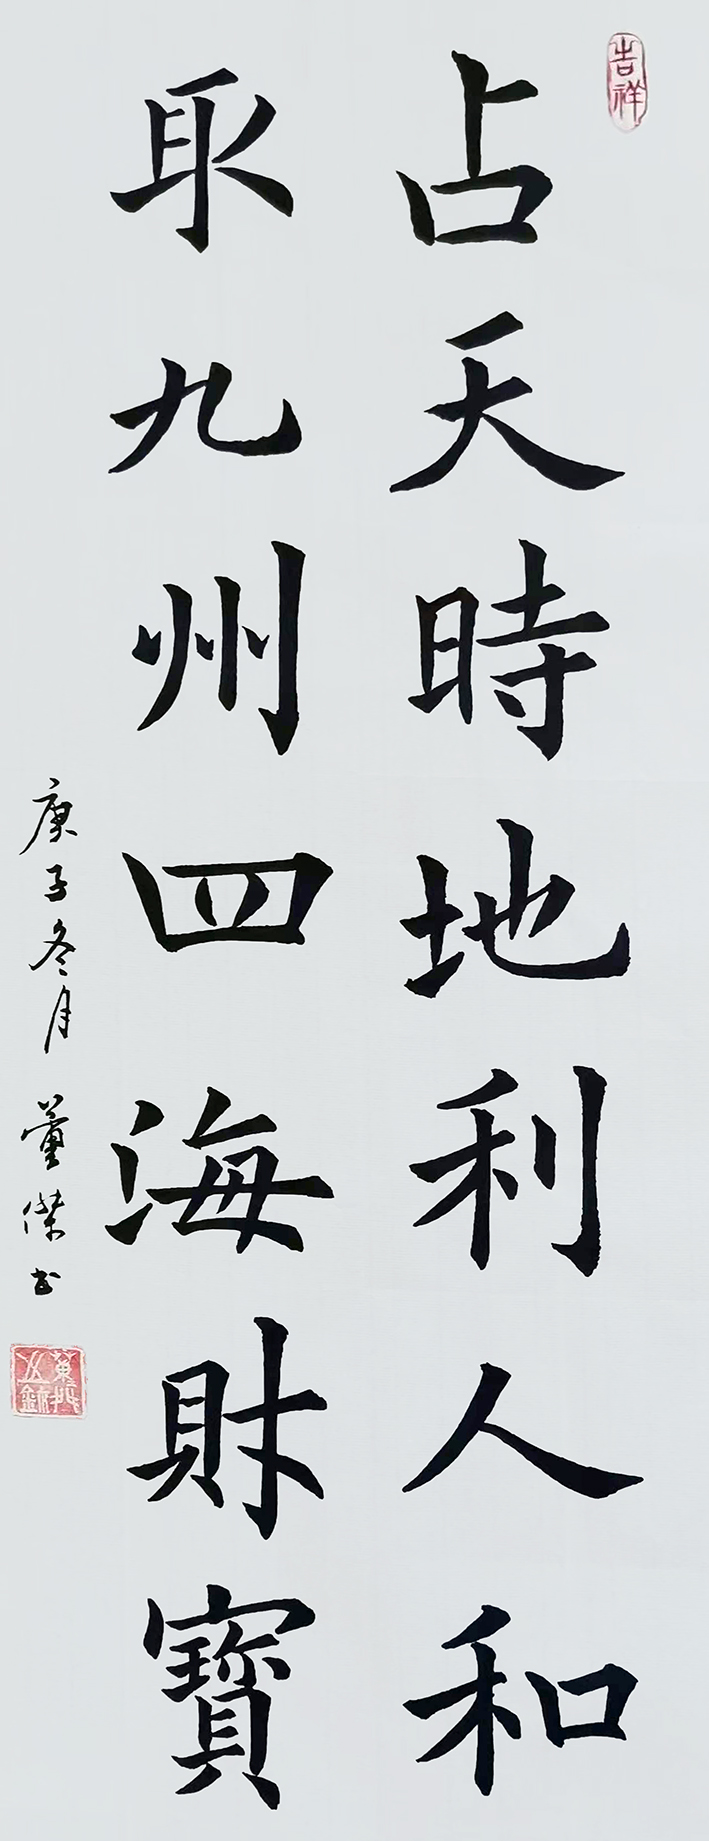 吉祥
占天時地利人和
取九州四海財寶
庚子冬月 董傑书